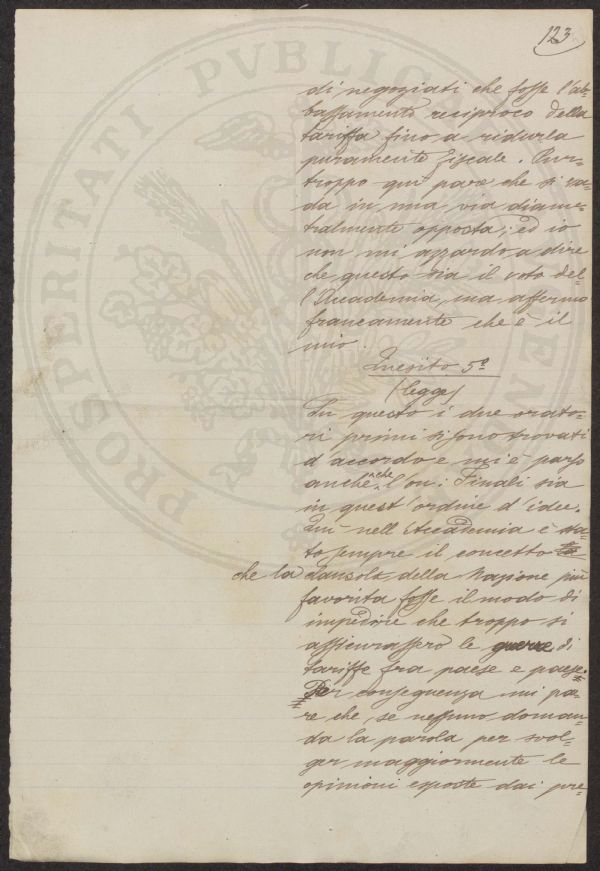 123
di negoziati che fosse l'ab-
bassamento reciproco della
tariffa fino a ridurla
puramente fiscale. Pur-
troppo qui pare che si va-
da in una via diame-
tralmente opposta; ed io
non mi azzardo a dire
che questo sia il voto del-
l'Accademia, ma affermo
francamente che è il
mio.
Quesito 5º
(legge)
Su questo i due orato-
ri primi si sono trovati
d'accordo e mi è parso
anche che l'on: Finali sia
in quest'ordine d'idee.
Qui nell'Accademia è sta-
to sempre il concetto
che la clausola della Nazione più
favorita fosse il modo di
impedire che troppo si
assicurassero le guerre di
tariffe fra paese e paese.
Per conseguenza mi pa-
re che, se nessuno doman-
da la parola per svol-
ger maggiormente le
opinioni esposte dai pre-
PROSPERITATI PVBLICAE